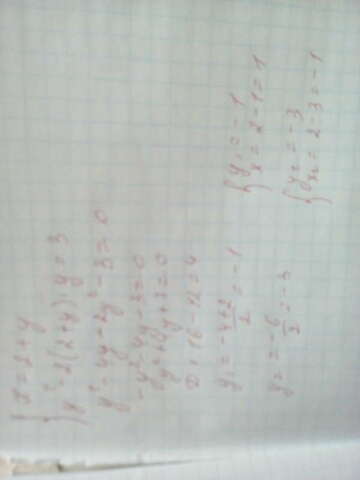 { x = 2 + y
{ y² - 2(2+y)·y = 3
y² - 4y - 2y² - 3 = 0
- y² - 4y - 3 = 0
y² + 4y + 3 = 0
D = 16 - 12 = 4
y₁ = -4+2/2 = -1
y₂ = -6/2 = -3
{ y₁ = -1
{ x = 2 - 1 = 1
{ y₂ = -3
{ x₂ = 2 - 3 = -1